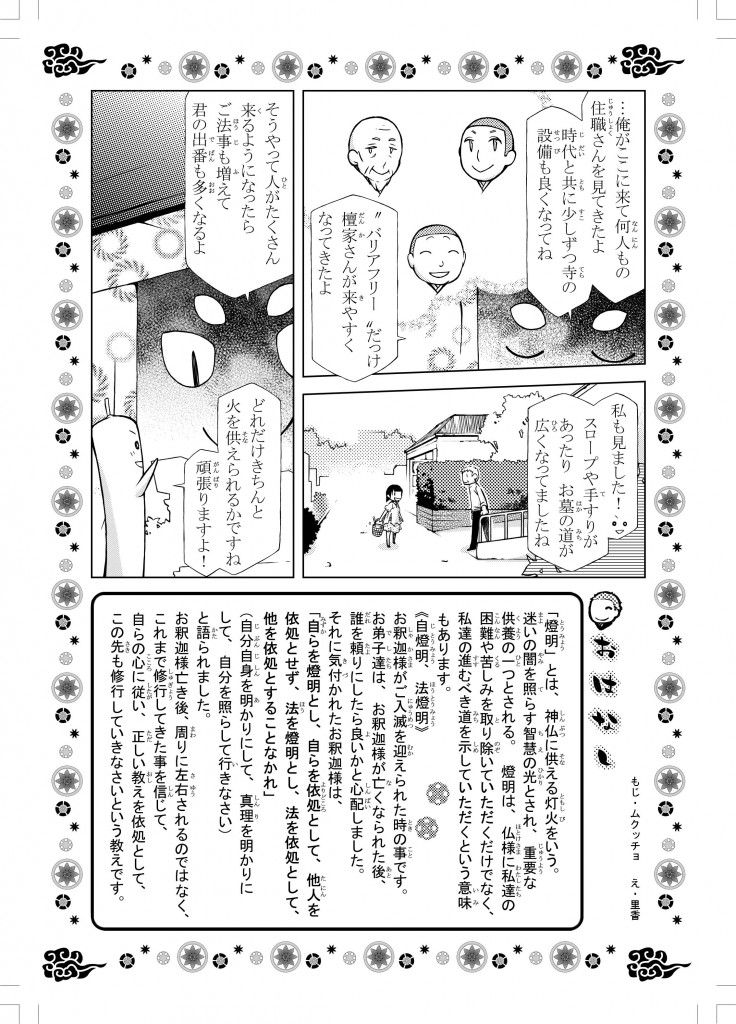 …俺がここに来て何人もの
住職さんを見てきたよ
時代と共に少しずつ寺の
設備も良くなってね
〝バリアフリー〟だっけ
檀家さんが来やすく
なってきたよ
私も見ました！
スロープや手すりが
あったり　お墓の道が
広くなってましたね
そうやって人がたくさん
来るようになったら
ご法事も増えて
君の出番も多くなるよ
どれだけきちんと
火を供えられるかですね
頑張りますよ！
おはなし
もじ・ムクッチョ　え・里香
「燈明」とは、神仏に供える灯火をいう。
迷いの闇を照らす智慧の光とされ、重要な
供養の一つとされる。　燈明は、仏様に私達の
困難や苦しみを取り除いていただくだけでなく、
私達の進むべき道を示していただくという意味
もあります。
《自燈明、法燈明》
お釈迦様がご入滅を迎えられた時の事です。
お弟子達は、お釈迦様が亡くなられた後、
誰を頼りにしたら良いかと心配しました。
それに気付かれたお釈迦様は、
「自らを燈明とし、自らを依処として、他人を
依処とせず、法を燈明とし、法を依処として、
他を依処とすることなかれ」
（自分自身を明かりにして、真理を明かりに
して、自分を照らして行きなさい）
と語られました。
お釈迦様亡き後、周りに左右されるのではなく、
これまで修行してきた事を信じて、
自らの心に従い、正しい教えを依処として、
この先も修行していきなさいという教えです。